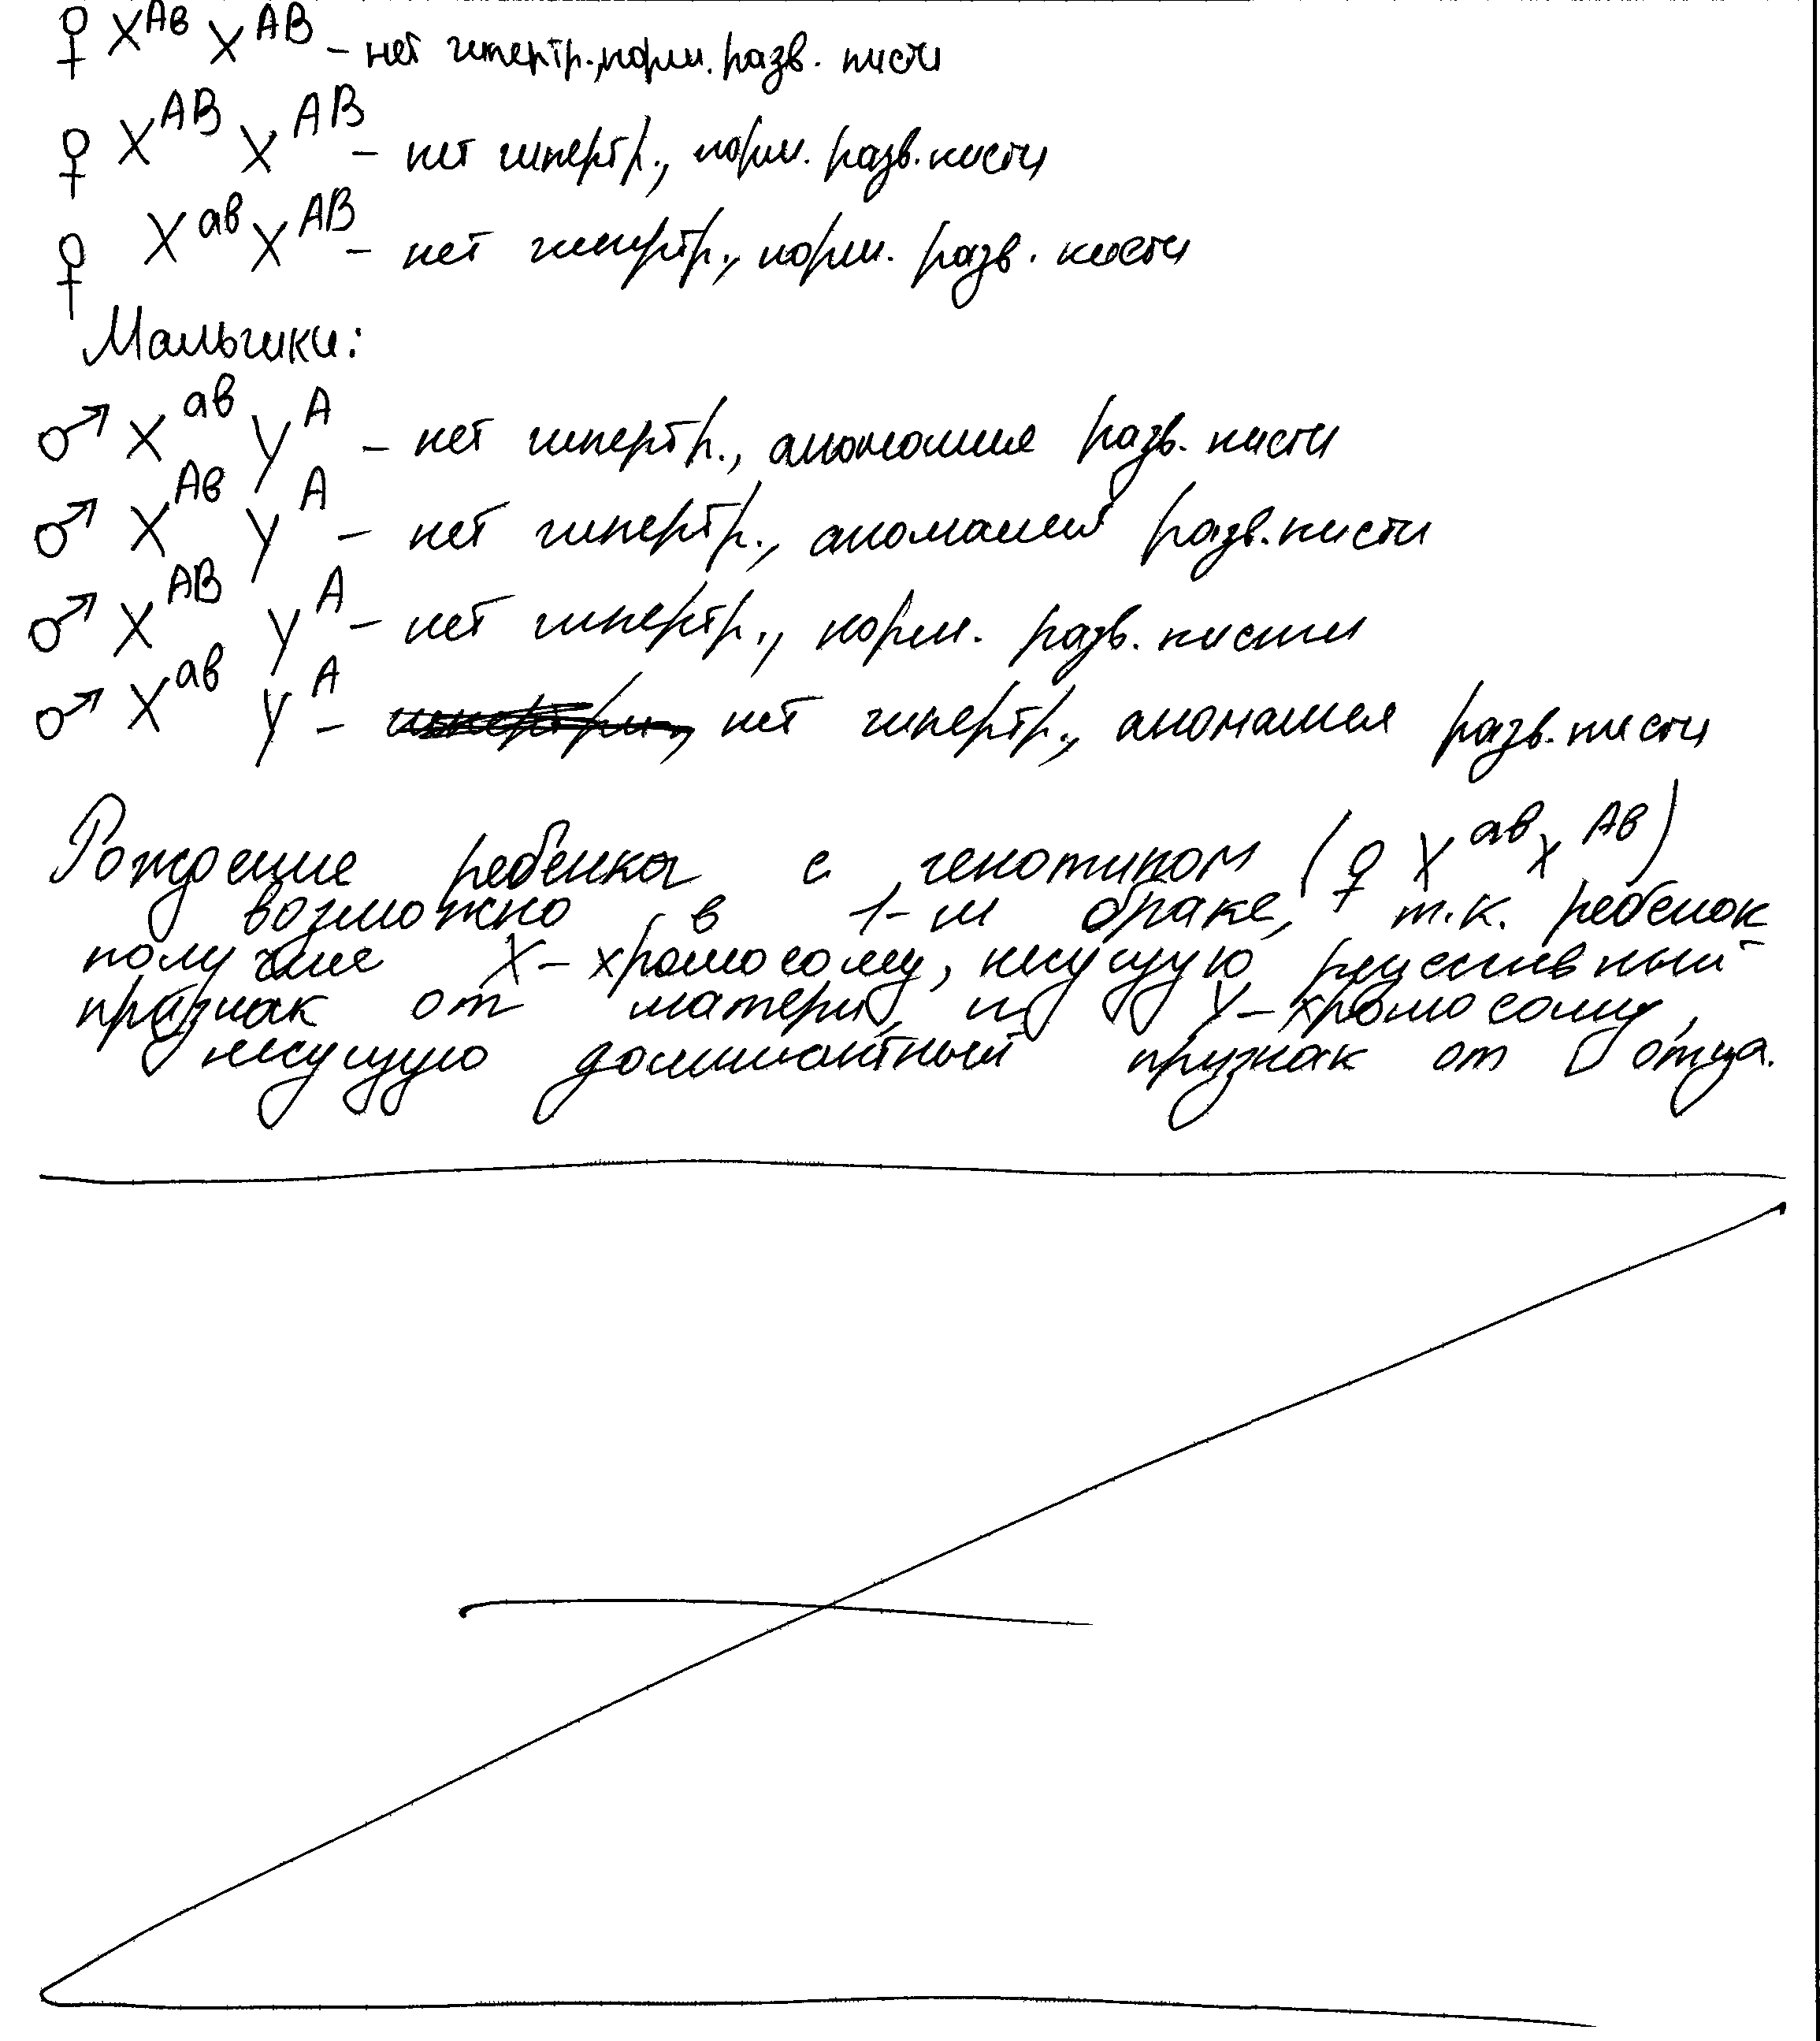 ♀ X^Ав X^АВ – нет гипертр., норм. разв. кисти
♀ X^АВ X^АВ – нет гипертр., норм. разв. кисти
♀ X^ав X^АВ – нет гипертр., норм. разв. кисти
Мальчики:
♂ X^ав Y^А – нет гипертр., анономалия разв. кисти
♂ X^Ав Y^А – нет гипертр., аномалия разв. кисти
♂ X^АВ Y^А – нет гипертр., норм. разв. кисти
♂ X^ав Y^А – нет гипертр., аномалия разв. кисти
Рождение ребенка с генотипом (♀ X^ав X^Ав)
возможно в 1-м браке, т.к. ребенок
получше X-хромосому, несущую рецессивный
признак от матери, и Y-хромосому,
несущую доминантный признак от отца.